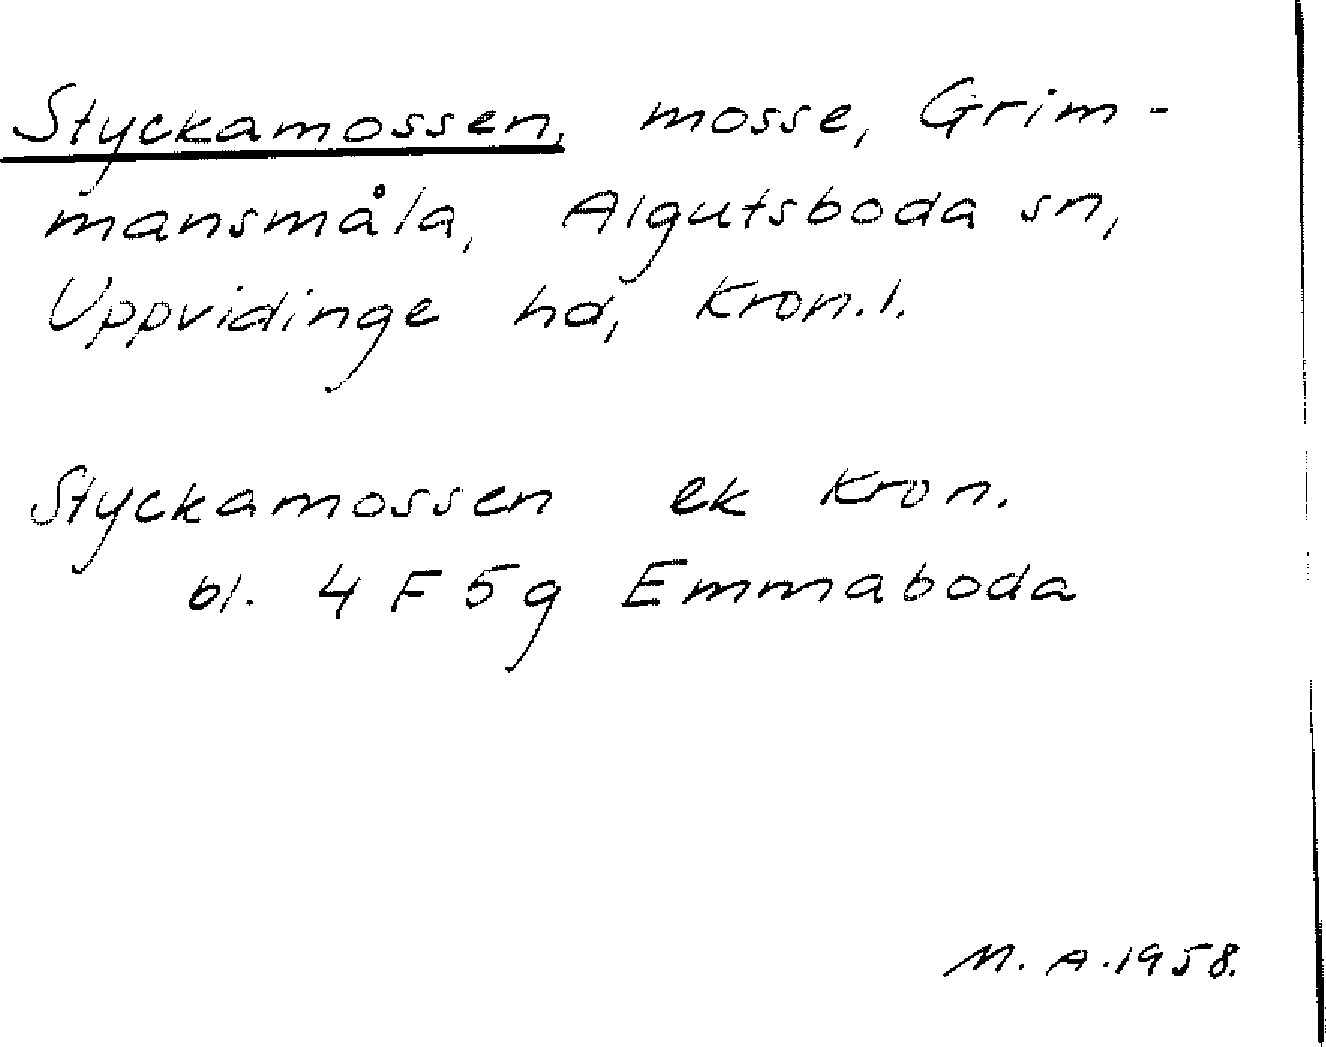 Styckamossen, mosse, Grim-
mansmåla, Algutsboda sn,
Uppvidinge hd, Kron.l.
Styckamossen ek Kron.
bl. 4 F 5g Emmaboda
M.A.1958.